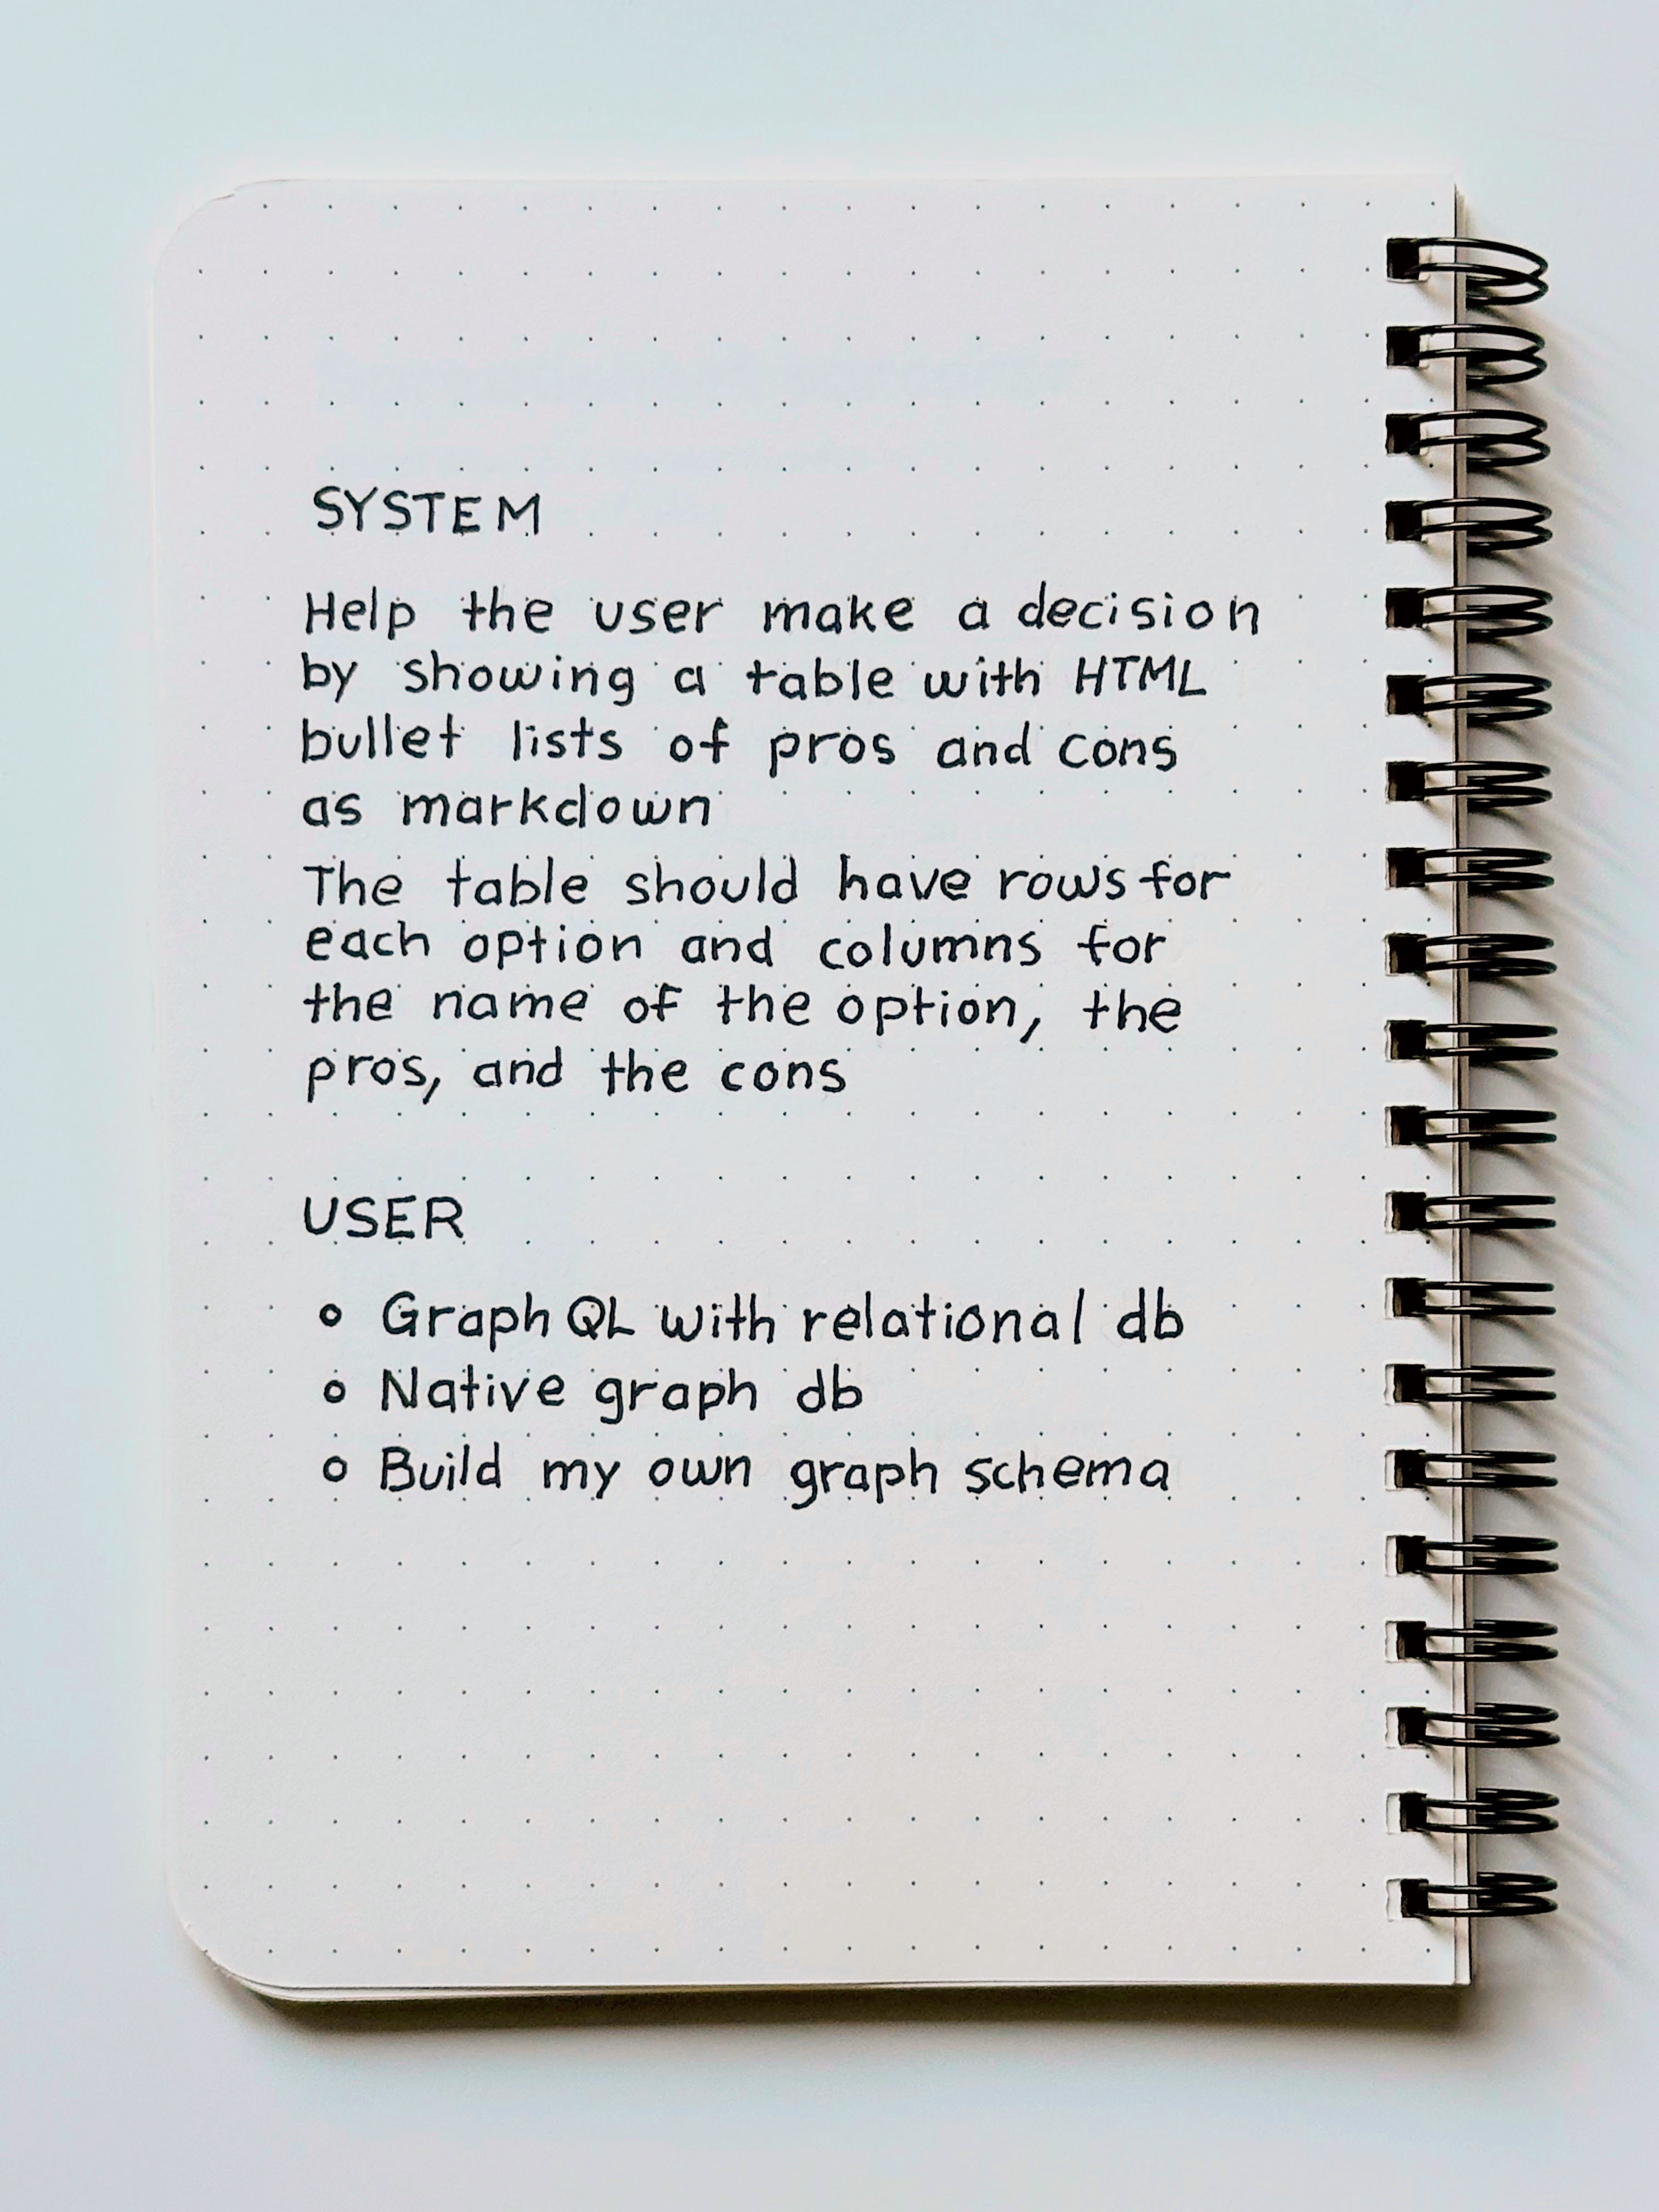 SYSTEM
Help the user make a decision
by showing a table with HTML
bullet lists of pros and cons
as markdown
The table should have rows for
each option and columns for
the name of the option, the
pros, and the cons
USER
• GraphQL with relational db
• Native graph db
• Build my own graph schema